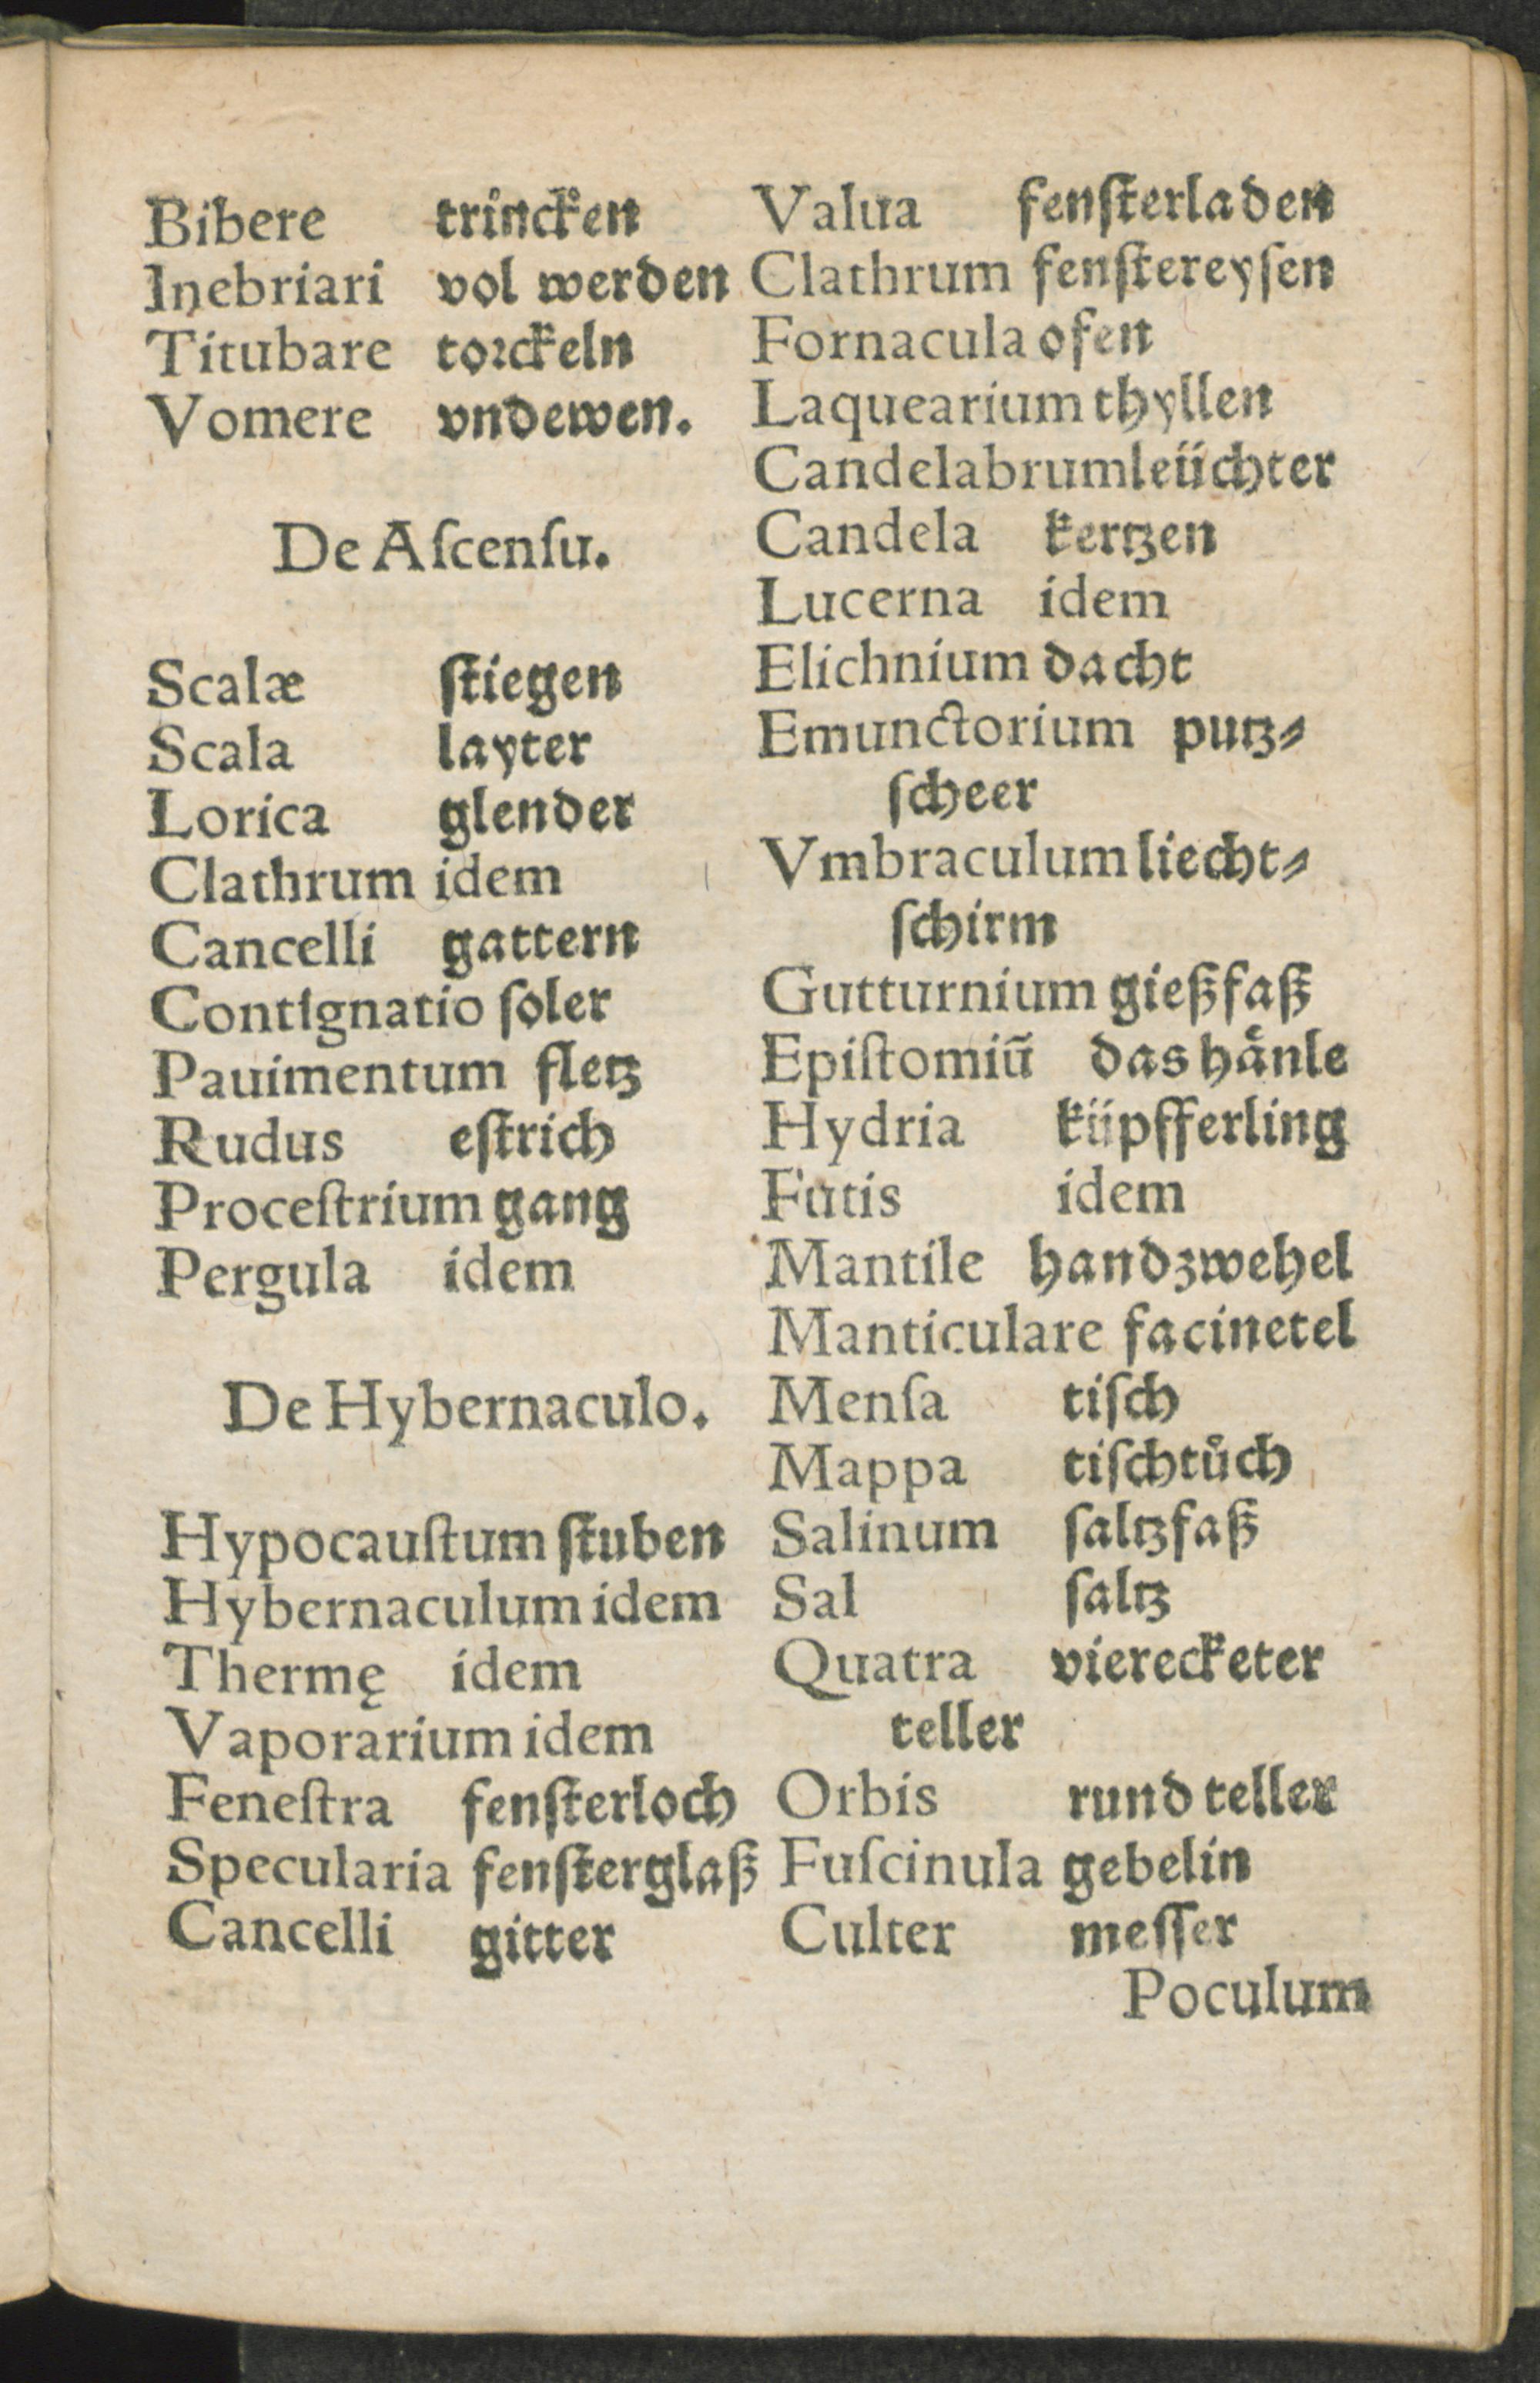 Bibere trincken
Inebriari vol werden
Titubare torckeln
Vomere vndewen.
De Aſcenſu.
Scalæ ſtiegen
Scala layter
Lorica glender
Clathrum idem
Cancelli gattern
Contignatio ſoler
Pauimentum fletz
Rudus eſtrich
Proceſtrium gang
Pergula idem
De Hybernaculo.
Hypocauſtum ſtuben
Hybernaculum idem
Thermę idem
Vaporarium idem
Feneſtra fenſterloch
Specularia fenſterglaß
Cancelli gitter
Valua fenſterladen
Clathrum fenſtereyſen
Fornacula ofen
Laquearium thyllen
Candelabrum leüchter
Candela kertzen
Lucerna idem
Elichnium dacht
Emunctorium putz⸗
ſcheer
Vmbraculum liecht⸗
ſchirm
Gutturnium gießfaß
Epiſtomiū das haͤnle
Hydria küpfferling
Futis idem
Mantile handzwehel
Manticulare facinetel
Menſa tiſch
Mappa tiſchtůch
Salinum ſaltzfaß
Sal ſaltz
Quatra viereckfeter
teller
Orbis rund teller
Fuſcinula gebelin
Culter meſſer
Poculum